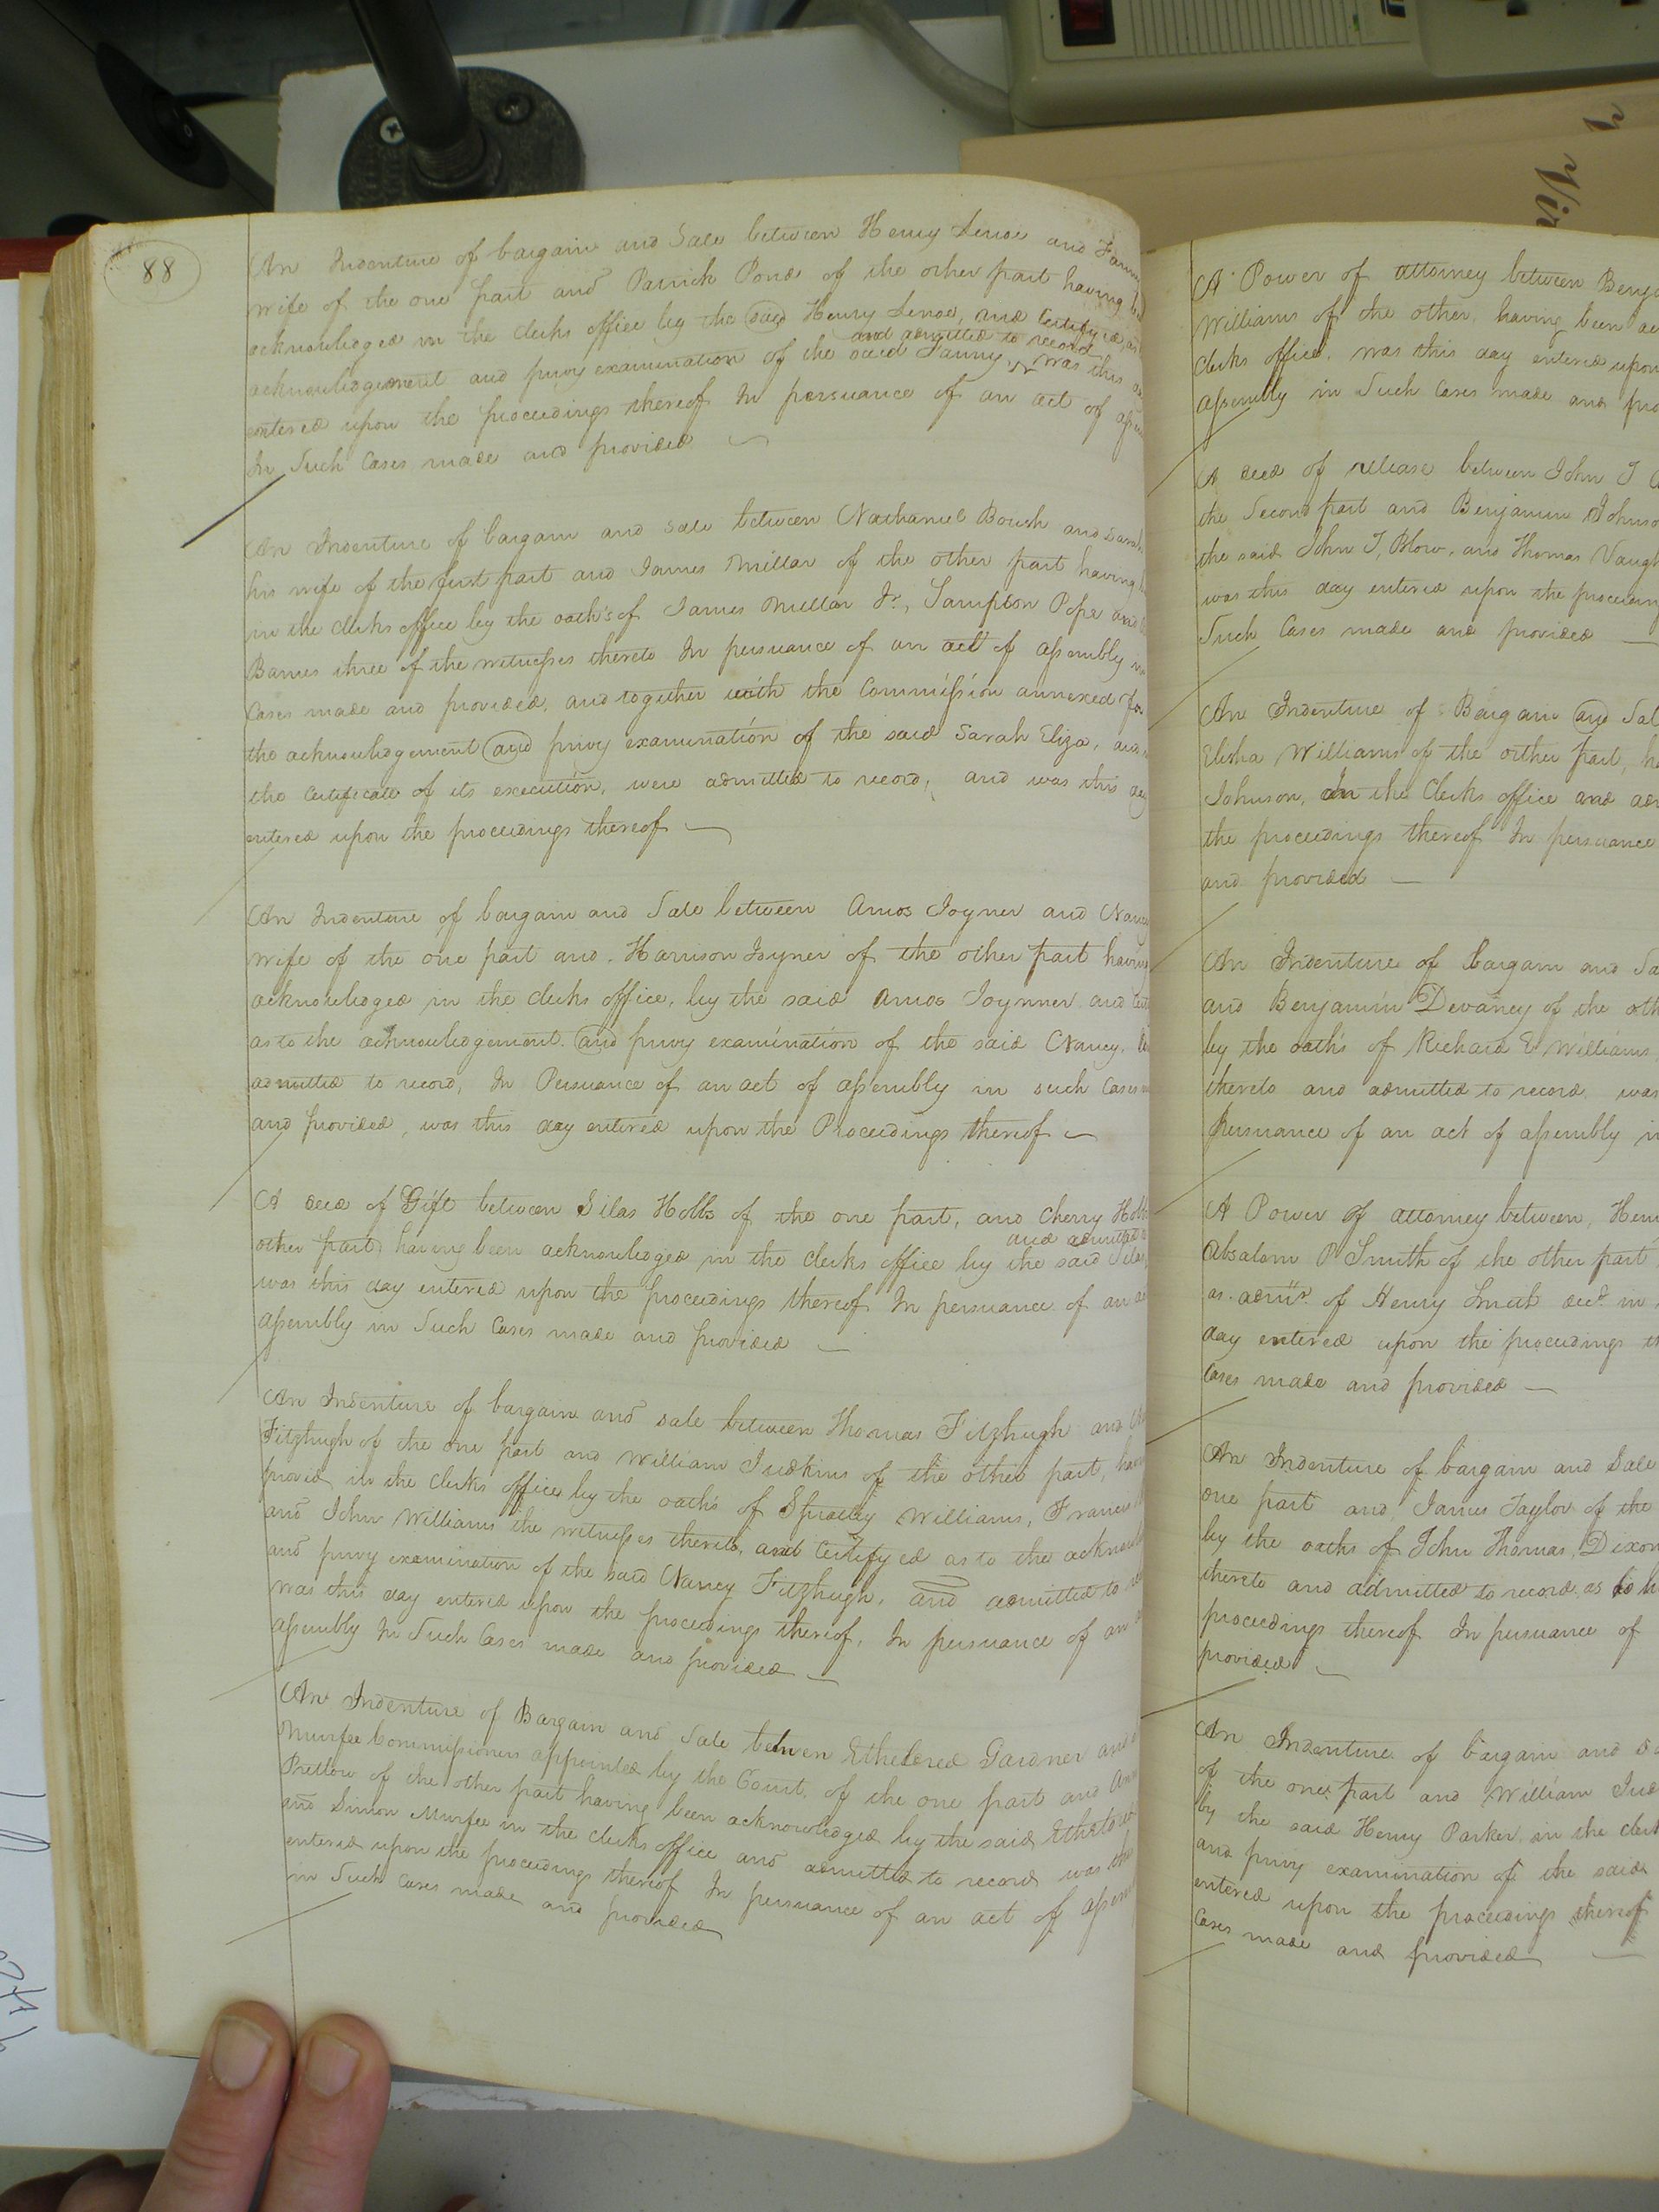 88
An Indenture of bargain and Sale between Henry and
wife of the one part and Patrick Pond of the other part having
acknowledged in the clerks office by the said Henry and Certifyed
and admitted to record
acknowledgement and privy examination of the said Fanny was this
entered upon the proceedings thereof In persuance of an act of
In Such Cases made and provided
An Indenture of bargain and Sale between Nathaniel Boush and Sarah
his wife of the first part and James Millar of the other part having
in the clerks office by the oath's of James Millar Jr., Sampson Pope and
Barnes three of the witnesses thereto In persuance of an act of assembly in
Cases made and provided, and together with the Commission annexed for
the acknowledgement and privy examination of the said Sarah Eliza, and
the Certificate of its execution, were admitted to record, and was this day
entered upon the proceedings thereof
An Indenture of bargain and Sale between Amos Joyner and Nancy
wife of the one part and Harrison Joyner of the other part having
acknowledged in the clerks office, by the said Amos Joynner and
as to the acknowledgement and privy examination of the said Nancy,
admitted to record, In Persuance of an act of assembly in such Cases
and provided, was this day entered upon the Proceedings thereof
A deed of Gift between Silas Hobbs of the one part, and Cherry Hobbs
and admitted
other part having been acknowledged in the clerks office by the said Silas,
was this day entered upon the proceedings thereof In persuance of an
assembly in Such Cases made and provided
An Indenture of bargain and sale between Thomas Fitzhugh and
Fitzhugh of the one part and William Judkins of the other part,
proved in the clerks office by the oath's of Spratley Williams, Francis
and John Williams the witnesses thereto, and Certifyed as to the
and privy examination of the said Nancy Fitzhugh, and admitted to
was this day entered upon the proceedings thereof, In persuance of an
assembly In Such Cases made and provided
An Indenture of Bargain and Sale between Ethelred Gardner and
Murfee Commissioners appointed by the Court, of the one part and
Pretlow of the other part having been acknowledged by the said
and Simon Murfee in the clerks office and admitted to record was this
entered upon the proceedings thereof In persuance of an act of
in Such Cases made and provided
A Power of attorney between
Williams of the other, having been
clerks office, was this day entered upon
assembly in Such Cases made and
A deed of release between John T
the Second part and Benjamin
the said John T, Blow, and Thomas
was this day entered upon the
Such Cases made and provided
An Indenture of Bargain and
Elisha Williams of the other part,
Johnson, In the Clerks office and
the proceedings thereof In persuance
and provided
An Indenture of bargain and
and Benjamin Devaney of the
by the oath's of Richard E Williams
thereto and admitted to record, was
Persuance of an act of assembly
A Power of attorney between,
Absalom P Smith of the other part
as admr. of Henry Smith decd in
day entered upon the proceedings
Cases made and provided
An Indenture of bargain and Sale
one part and James Taylor of the
by the oaths of John Thomas, Dixon
thereto and admitted to record, as to
proceedings thereof In persuance of
provided
An Indenture of bargain and
of the one part and William
by the said Henry Parker in the
and privy examination of the said
entered upon the proceedings thereof
Cases made and provided